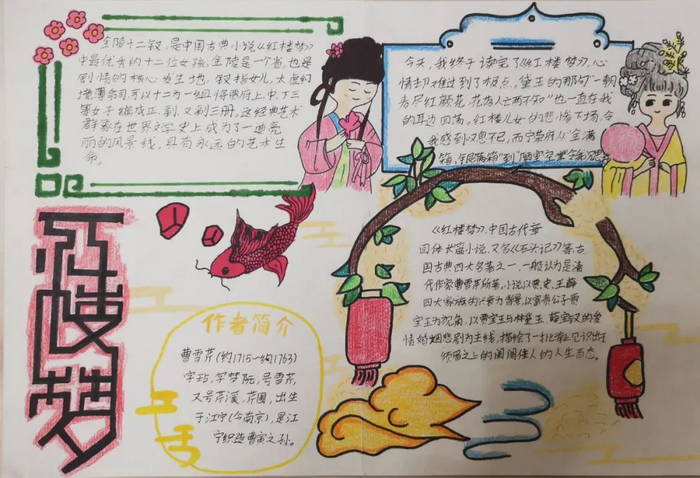 金陵十二钗,是中国古典小说《红楼梦》
中最优秀的十二位女孩,金陵是一个省,也是
剧情的核心发生地,钗指女儿,太虚幻
境薄命司可以十二为一组将贾府上、中、下三
等女子编成正、副、又副三册。这经典艺术
群象在世界文学史上成为了一道亮
丽的风景线,具有永远的艺术生
命。
今天,我终于读完了《红楼梦》,心
情却难过到了极点,黛玉的那句"一朝
春尽红颜老,花落人亡两不知"也一直在我
的耳边回荡。红楼儿女的悲惨下场,令
我感到叹息不已,而宁荣府从"金满
箱,银满箱"到
红楼梦
作者简介
曹雪芹(约1715-约1763)
字沾,字梦阮,号雪芹,
又号芹溪、芹圃,出生
于江宁(今南京),是江
宁织造曹寅之孙。
《红楼梦》,中国古代章
回体长篇小说,又名《石头记》等,古
国古典四大名著之一,一般认为是清
代作家曹雪芹所著,小说以贾、史、王、薛
四大家族的兴衰为背景,以富贵公子贾
宝玉为视角,以贾宝玉与林黛玉、薛宝钗的爱
情婚姻悲剧为主线,描绘了一批举止见识出于
须眉之上的闺阁佳人的人生百态。